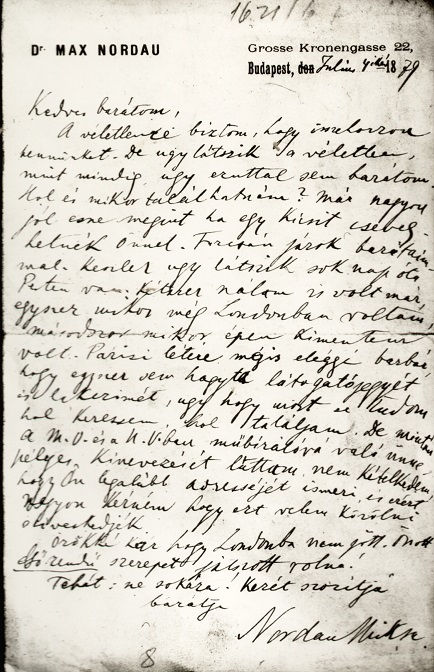 1621/6
Dr. MAX NORDAU
Grosse Kronengasse 22,
Budapest, den Julius 4ikén 1879
Kedves barátom,
A véletlenre biztom, hogy összehozzon
bennünket. De ugy látszik a véletlen,
mint mindig, ugy ezuttal sem barátom.
Hol és mikor találhatnám? Már nagyon
jól esne megint ha egy kicsit cseveg-
hetnék Önnel. Furcsán járok barátaim-
mal. Keszler ugy látszik sok nap óta
Pesten van. Kétszer nálam is volt már,
egyszer mikor még Londonban voltam,
másodszor mikor épen kimentem
volt. Párisi létére mégis eléggé barbár,
hogy egyszer sem hagyta látogatójegyét
és lakcimét, ugy hogy most se tudom
hol keressem, hol találjam. De miután
a M.O. és a N.V.ban műbirálóvá való ünne-
pélyes kinevezését láttam, nem kételkedem
hogy Ön legalább adresséjét ismeri, és ezért
nagyon kérném hogy ezt velem közölni
sziveskedjék.
Örökké kár hogy Londonba nem jött. Ön ott
elsőrendü szerepet játszott volna.
Tehát: ne sokára! Kezét szoritja
barátja
Nordau Miksa
8